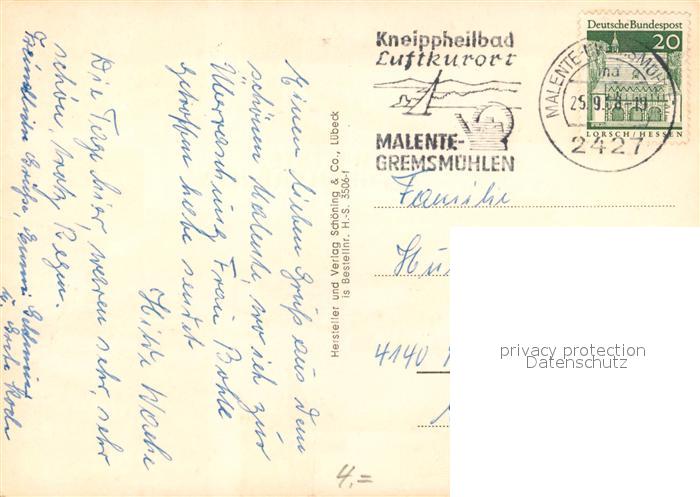 Einen lieben Gruß aus dem
schönen Malente, wo ich zur
Überraschung Frau Bohle
getroffen habe sendet
Hilde
Die Tage hier, waren sehr, sehr
schön, trotz Regen.
Freundliche Grüße,
Hersteller und Verlag Schöning & Co., Lübeck
is Bestellnr. H.-S. 3506-f
Kneippheilbad
Luftkurort
MALENTE-
GREMSMÜHLEN
MALENTE-GREMSMÜHLEN
25.9.68-19
2427
Deutsche Bundespost
20
LORSCH/HESSEN
Familie
4140
4.=
privacy protection
Datenschutz